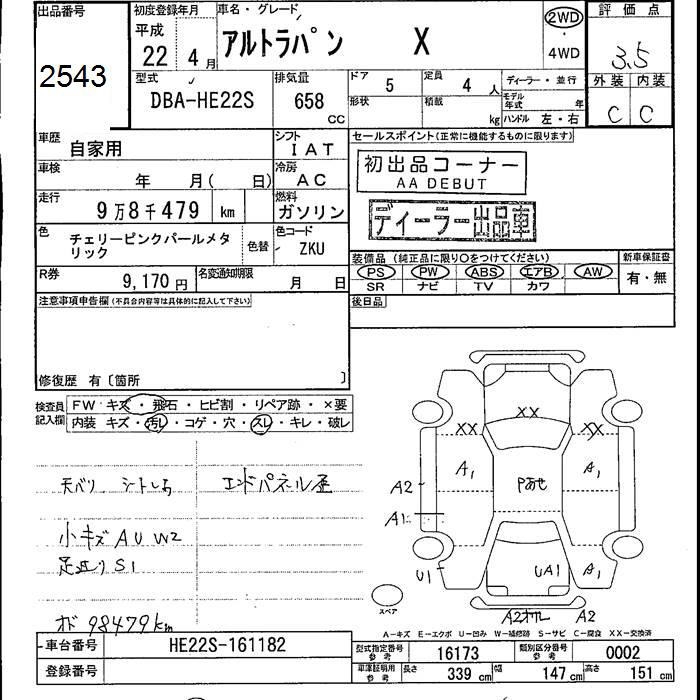 出品番号 初度登録年月 車名・グレード 評価点
2543
平成 22年 4月 アルトラパン X 2WD 4WD 3.5
型式 排気量 ドア 5 定員 4人 ディーラー・並行 外装 内装
DBA-HE22S 658 CC 形状 積載 kg モデル年式 年 ハンドル 左・右 C C
車歴 自家用 シフト IAT セールスポイント(正常に機能するものに限ります)
車検 年 月( 日) 冷房 AC 初出品コーナー
AA DEBUT
走行 9万8千479 km 燃料 ガソリン ディーラー出品車
色 チェリーピンクパールメタリック 色替 色コード ZKU
装備品(純正品に限り〇をつけてください) 新車保証書
PS PW ABS エアB AW 有・無
SR ナビ TV カワ
R券 9,170円 名変通知期限 月 日
注意事項申告欄(不具合内容等は具体的に記入して下さい) 後日品
修復歴 有〔箇所 〕
検査員記入欄 FW キズ・飛石・ヒビ割・リペア跡・×要
内装 キズ・汚レ・コゲ・穴・スレ・キレ・破レ
XX
XX XX
A1 A1
天バリ エンドパネル
A2
A1
小キズ AU W2
S1
U1 UA1 A1
スペア
A2 A2
98479km
A-キズ E-エクボ U-凹み W-補修跡 S-サビ C-腐食 XX-交換済
車台番号 HE22S-161182 型式指定番号 参考 16173 類別区分番号 参考 0002
登録番号 車庫証明用 参考 長さ 339 cm 幅 147 cm 高さ 151 cm